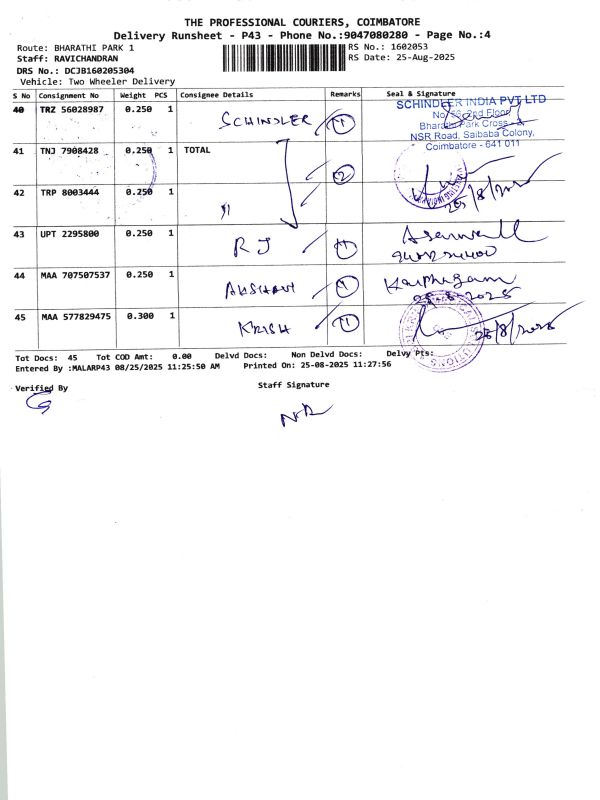 THE PROFESSIONAL COURIERS, COIMBATORE
Delivery Runsheet - P43 - Phone No.:9047080280 - Page No.:4
Route: BHARATHI PARK 1
RS No.: 1602053
Staff: RAVICHANDRAN
RS Date: 25-Aug-2025
DRS No.: DCJB160205304
Vehicle: Two Wheeler Delivery
S No Consignment No Weight PCS Consignee Details Remarks Seal & Signature
40 TRZ 56028987 0.250 1 SCHINDLER 1
SCHINDLER INDIA PVT LTD
2nd Floor
Bharathi Park Cross
NSR Road, Saibaba Colony,
Coimbatore - 641 011
41 TNJ 7908428 0.250 1 TOTAL 2
25/8/2025
42 TRP 8003444 0.250 1 "
43 UPT 2295800 1 R J 1
44 MAA 707507537 0.250 1 1
25-8-2025
45 MAA 577829475 0.300 1 KRISH 1 25/8/2025
Tot Docs: 45 Tot COD Amt: 0.00 Delvd Docs: Non Delvd Docs: Delvy Pts:
Entered By :MALARP43 08/25/2025 11:25:50 AM Printed On: 25-08-2025 11:27:56
Verified By
Staff Signature